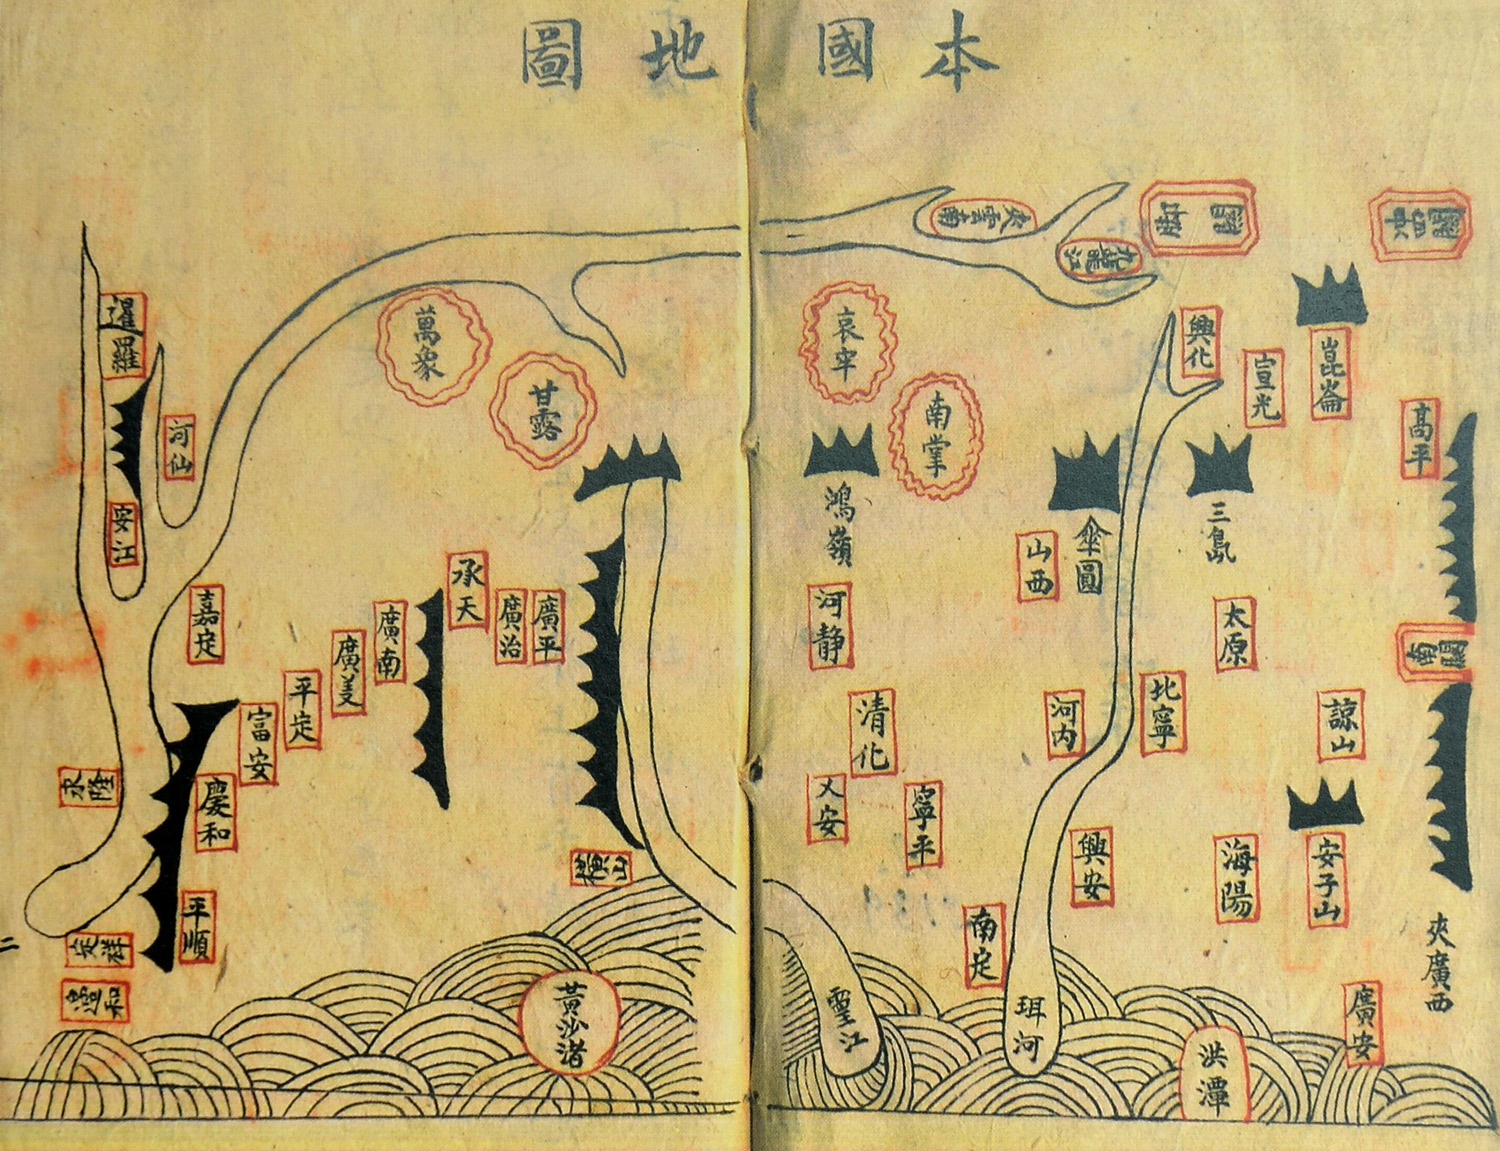 本國地圖
夾雲南
九龍江
興化
宣光
崑崙
高平
哀牢
南掌
鴻嶺
傘圓
三島
山西
太原
南關
河静
清化
河内
北寧
諒山
乂安
寧平
興安
海陽
安子山
夾廣西
南定
廣安
珥河
洪潭
𤅷江
萬象
甘露
暹羅
河仙
安江
嘉定
承天
廣治
廣平
廣南
廣美
平定
富安
慶和
平順
永隆
橫山
定祥
邊和
黃沙渚
二